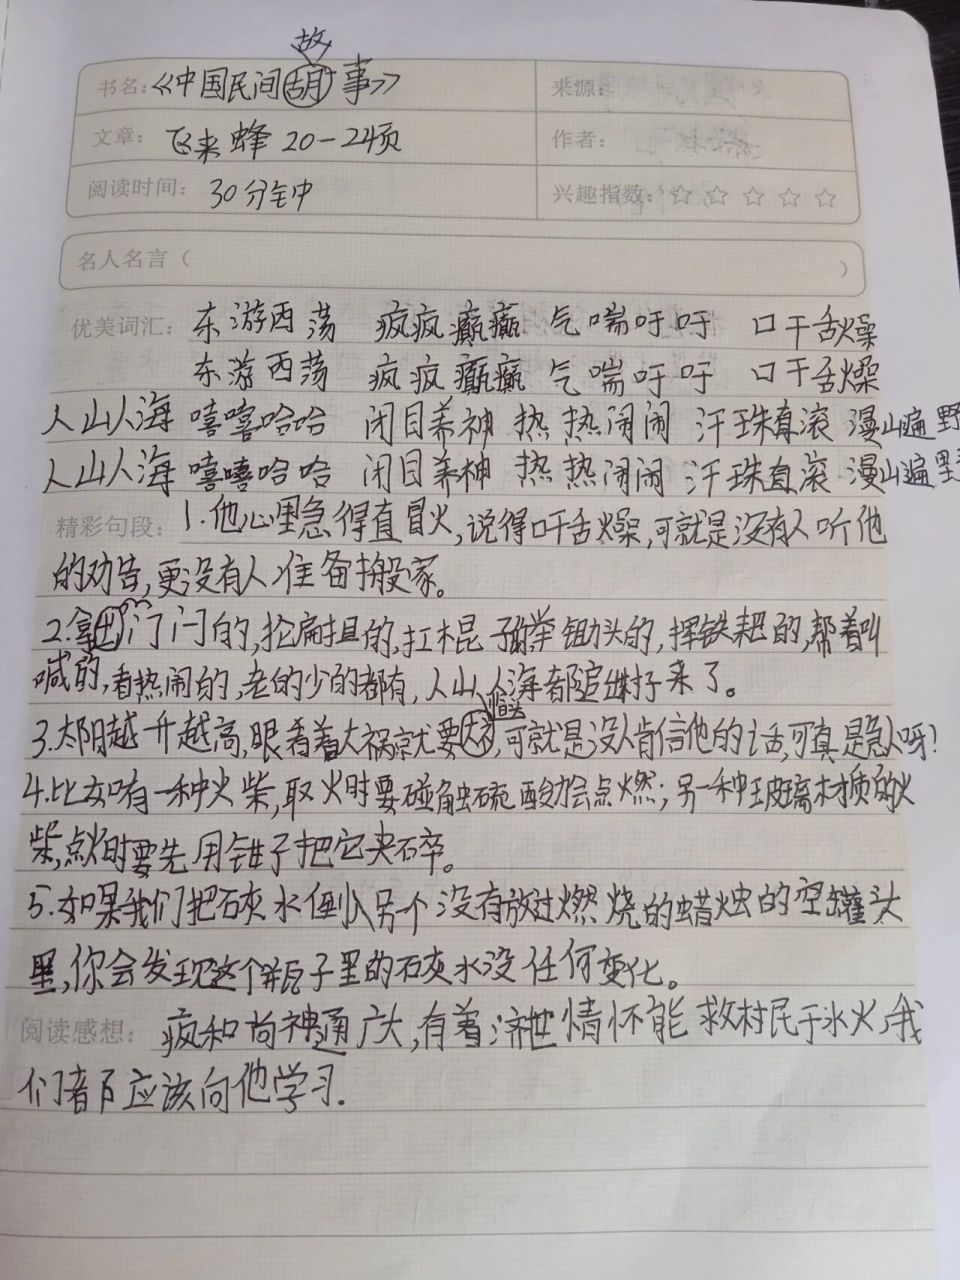 故
书名:《中国民间胡事》 来源:
文章: 飞来蜂 20-24页 作者:
阅读时间: 30分钟 兴趣指数: ☆ ☆ ☆ ☆ ☆
名人名言( )
优美词汇: 东游西荡 疯疯癫癫 气喘吁吁 口干舌燥
东游西荡 疯疯癫癫 气喘吁吁 口干舌燥
人山人海 嘻嘻哈哈 闭目养神 热热闹闹 汗珠直滚 漫山遍野
人山人海 嘻嘻哈哈 闭目养神 热热闹闹 汗珠直滚 漫山遍野
精彩句段: 1.他心里急得直冒火,说得口干舌燥,可就是没有人听他
的劝告,更没有人准备搬家。
2.拿门闩的,抡扁担的,扛棍子的,举锄头的,挥铁耙的,帮着叫
喊的,看热闹的,老的少的都有,人山人海都追出村子来了。
临头
3.太阳越升越高,眼看着大祸就要,可就是没人肯信他的话,可真是急人呀!
4.比如有一种火柴,取火时要碰触硫酸才会点燃;另一种玻璃材质的火
柴,点火时要先用钳子把它夹碎。
5.如果我们把石灰水倒入另个没有放过燃烧的蜡烛的空罐头
里,你会发现这个瓶子里的石灰水没任何变化。
阅读感想: 疯和尚神通广大,有着济世情怀能救村民于水火,我
们都应该向他学习.